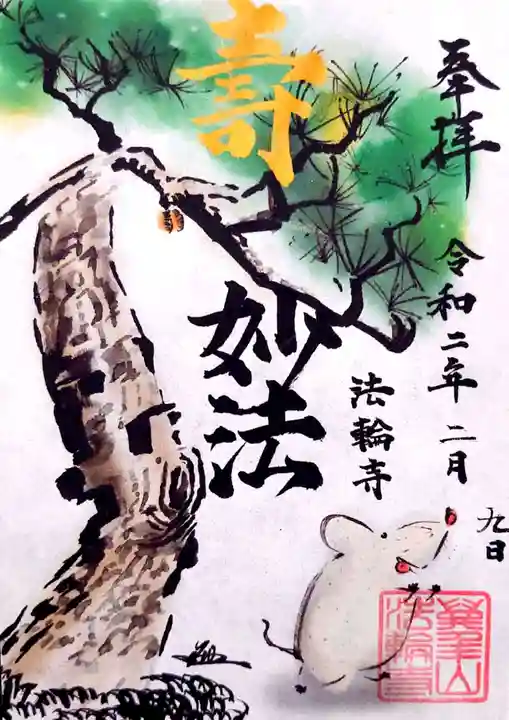 奉拝
令和二年 二月
九日
壽
妙法
法輪寺